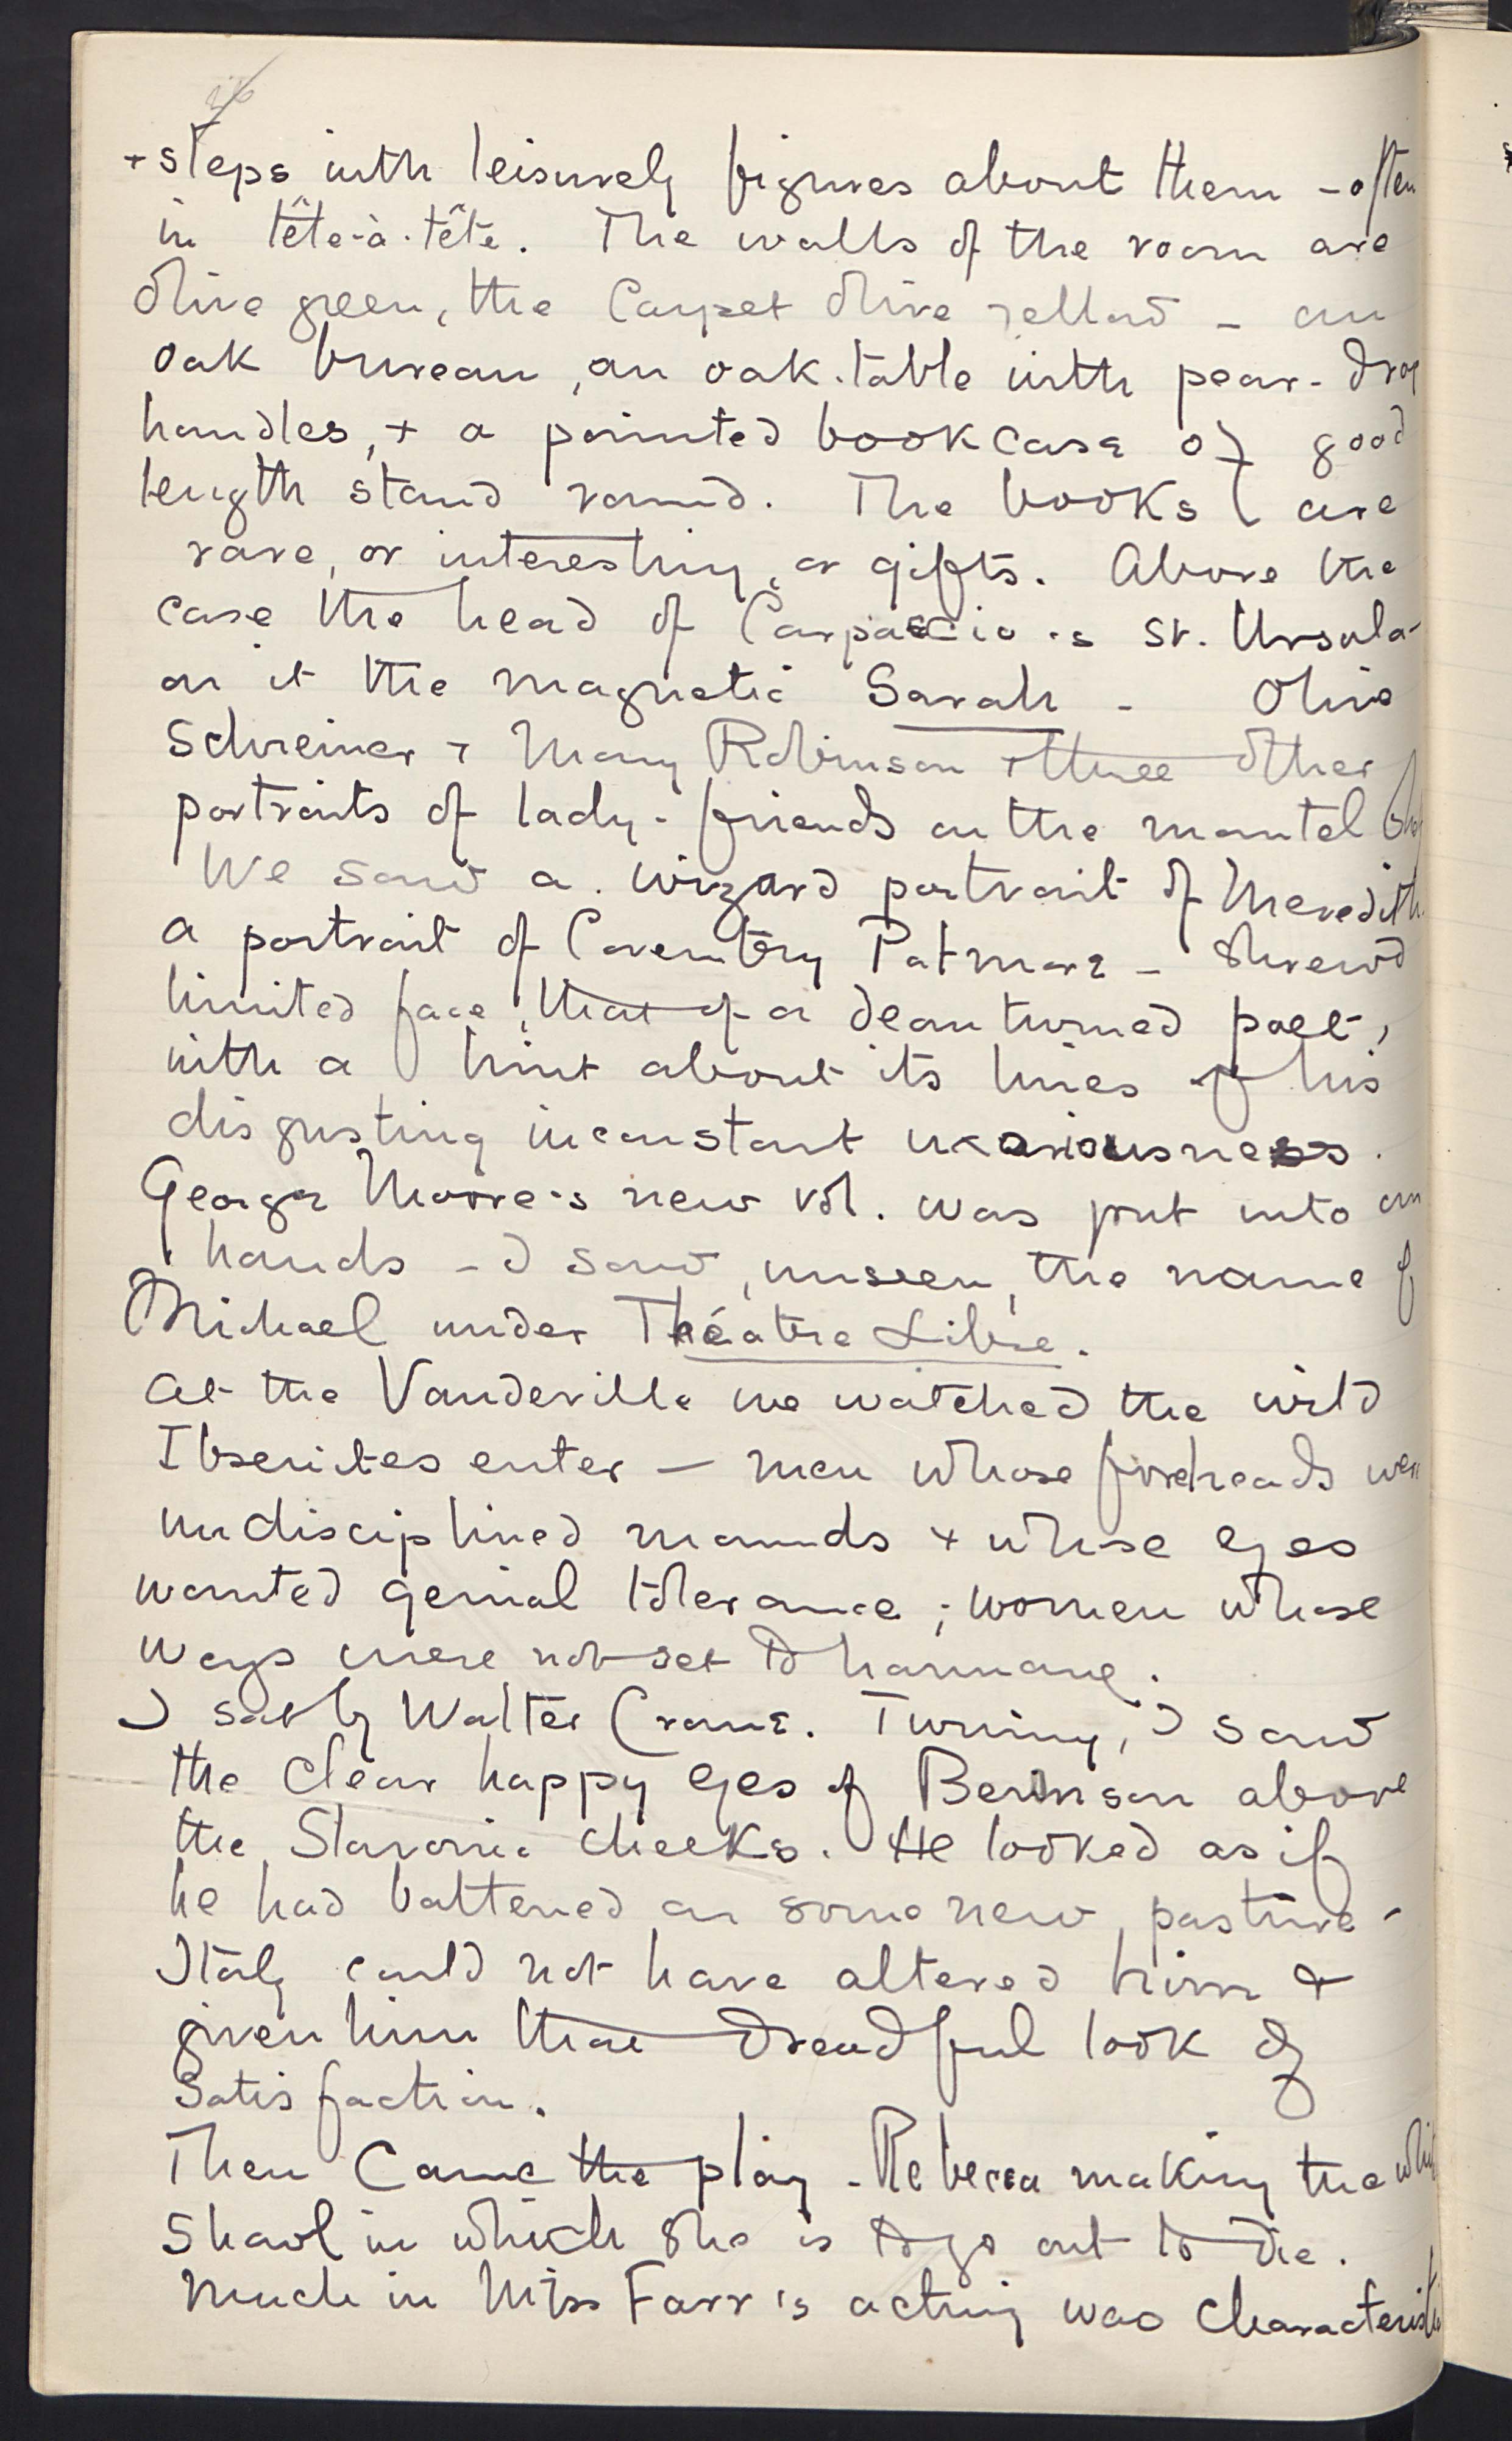 + steps with leisurely figures about them – often
in tête-à-tête. The walls of the room are
Olive green, the Carpet Olive yellow – an
oak bureau, an oak-table with pear-drop
handles, + a painted bookcase of good
length stand round. The books are
rare, or interesting, or gifts. Above the
case the head of Carpaccio's St. Ursula –
on it the magnetic Sarah – Olive
Schreiner + Mary Robinson + three other
portraits of lady-friends on the mantel
We saw a wizard portrait of Meredith
a portrait of Coventry Patmore – shrewd
limited face, that of a dean turned poet,
with a hint about its lines of his
disgusting inconstant uxoriousness.
George Moore's new vol. was put into our
hands – I saw, unseen, the name of
Michael under Théatre Libre.
At the Vaudeville we watched the wild
Ibsenites enter — men whose foreheads were
undisciplined mounds + whose eyes
wanted genial tolerance; women whose
ways were not set to harmony.
I sat by Walter Crane. Turning, I saw
the clear happy eyes of Bernson above
the Slavonic cheeks. He looked as if
he had battened on some new pasture –
Italy could not have altered him &
given him that dreadful look of
Satisfaction.
Then Came the play – Rebecca making the
Shawl in which she is to go out to die.
Much in Miss Farr's acting was characteristic